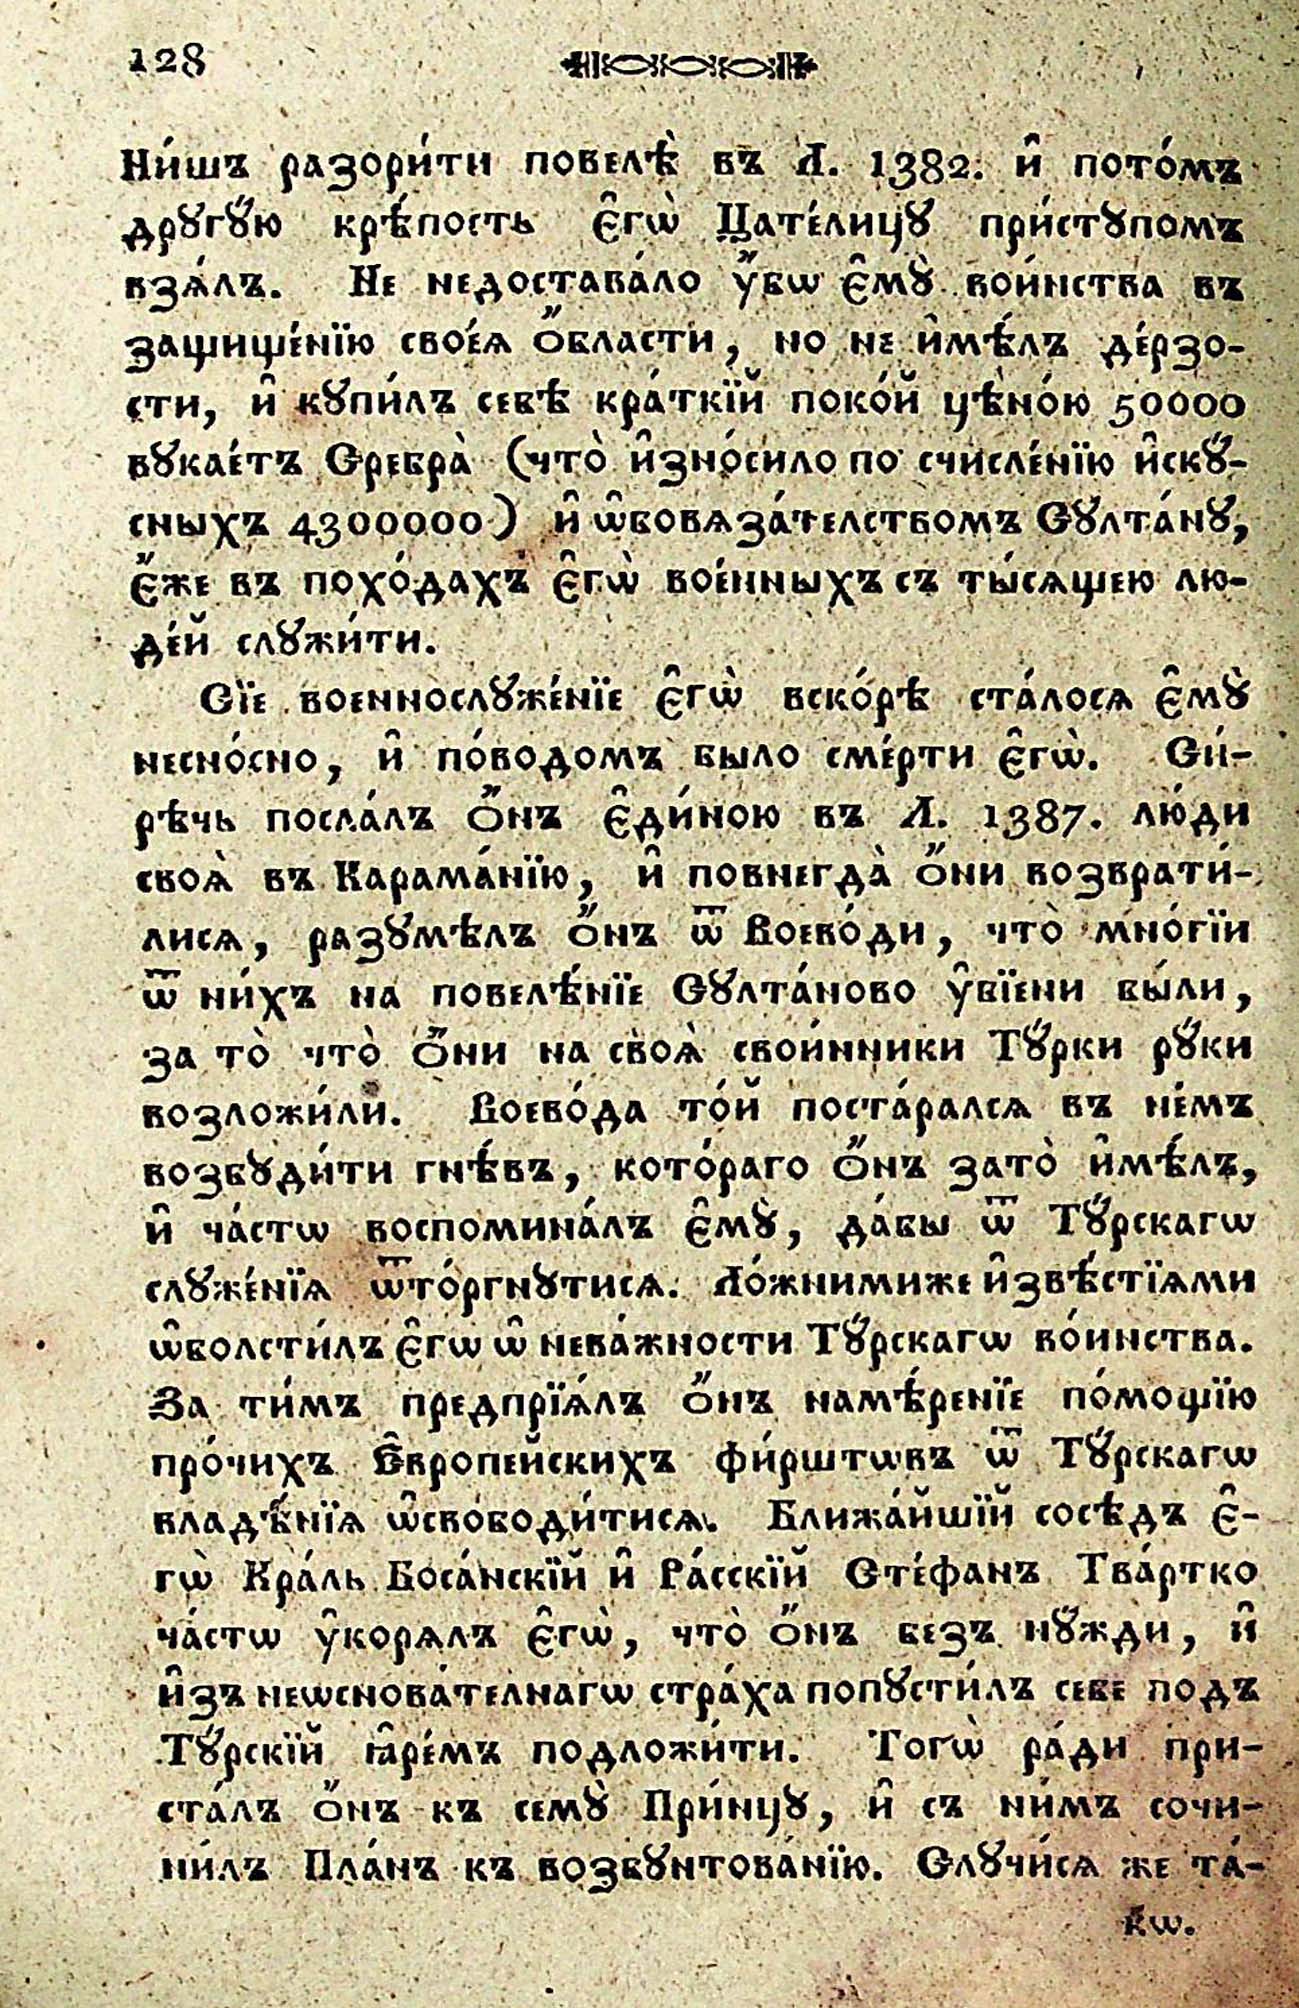 128
Ни́шъ разори́ти повелѣ̀ въ Л. 1382. и҆̑ пото́мъ
дрꙋгꙋ́ю крѣ́пость є҆̑гѡ̀ Цате́лицꙋ при́стꙋпомъ
взѧ́лъ. Не недостава́ло ᲂу҆́бѡ є҆̑мꙋ̀ во́инства въ
защище́нїю своеѧ̀ ѻ҆́бласти, но не и҆̑мѣ́лъ де́рзо-
сти, и҆̑ кꙋпи́лъ себѣ̀ кра́ткїй поко́й цѣно́ю 50000
вꙋкае́тъ Сребра̀ (что̀ и҆̑зно́сило по счисле́нїю и҆̑скꙋ́-
сныхъ 4300000) и҆̑ ѡ҆̑бовѧза́телствомъ Сꙋлта́нꙋ,
є҆́же въ похо́дахъ є҆̑гѡ̀ вое́нныхъ съ ты́сѧщею лю-
де́й слꙋжи́ти.
Сїе военнослꙋже́нїе є҆̑гѡ̀ вско́рѣ ста́лосѧ є҆̑мꙋ̀
несно́сно, и҆̑ по́водомъ было сме́рти є҆̑гѡ̀. Си́-
рѣчь посла́лъ ѻ҆́нъ є҆̑ди́ною въ Л. 1387. лю́ди
своѧ̀ въ Карама́нїю, и҆̑ повнегда̀ ѻ҆́ни возврати́-
лисѧ, разꙋмѣ́лъ ѻ҆́нъ ѿ Воево́ди, что̀ мно́гїи
ѿ ни́хъ на повелѣ́нїе Сꙋлта́ново ᲂу҆̑бїени бы́ли,
за то̀ что̀ ѻ҆́ни на своѧ̀ своинники Тꙋ́рки рꙋ́ки
возложи́ли. Воево́да то́й поста́ралсѧ въ не́мъ
возбꙋди́ти гнѣ́въ, кото́раго ѻ҆́нъ зато̀ и҆̑мѣ́лъ,
и҆̑ ча́стѡ воспомина́лъ є҆̑мꙋ̀, да́бы ѿ Тꙋ́рскагѡ
слꙋже́нїѧ ѿто́ргнꙋтисѧ. Ло́жнимиже и҆̑звѣ́стїѧми
ѡ҆̑болсти́лъ є҆̑гѡ ѡ҆̑ нева́жности Тꙋ́рскагѡ во́инства.
За ти́мъ предпрїѧ́лъ ѻ҆́нъ намѣ́ренїе по́мощїю
про́чихъ Є҆̑вропейскихъ фи́рштѡвъ ѿ Тꙋ́рскагѡ
владѣ́нїѧ ѡ҆̑свободи́тисѧ. Ближа́йшїй сосѣ́дъ є҆̑-
гѡ̀ Кра́ль Боса́нскїй и҆̑ Ра́сскїй Сте́фанъ Тва́ртко
ча́стѡ ᲂу҆̑корѧ́лъ є҆̑гѡ̀, что̀ ѻ҆́нъ безъ нꙋ́жди, и҆̑
и҆̑зъ неѡснова́телнагѡ стра́ха попꙋсти́лъ себе подъ
Тꙋ́рскїй ꙗ҆̑ре́мъ подложи́ти. Тогѡ̀ ра́ди при-
ста́лъ ѻ҆́нъ къ семꙋ̀ При́нцꙋ, и҆̑ съ ни́мъ сочи-
ни́лъ Пла́нъ къ возбꙋнтова́нїю. Слꙋчи́сѧ же та́-
кѡ.